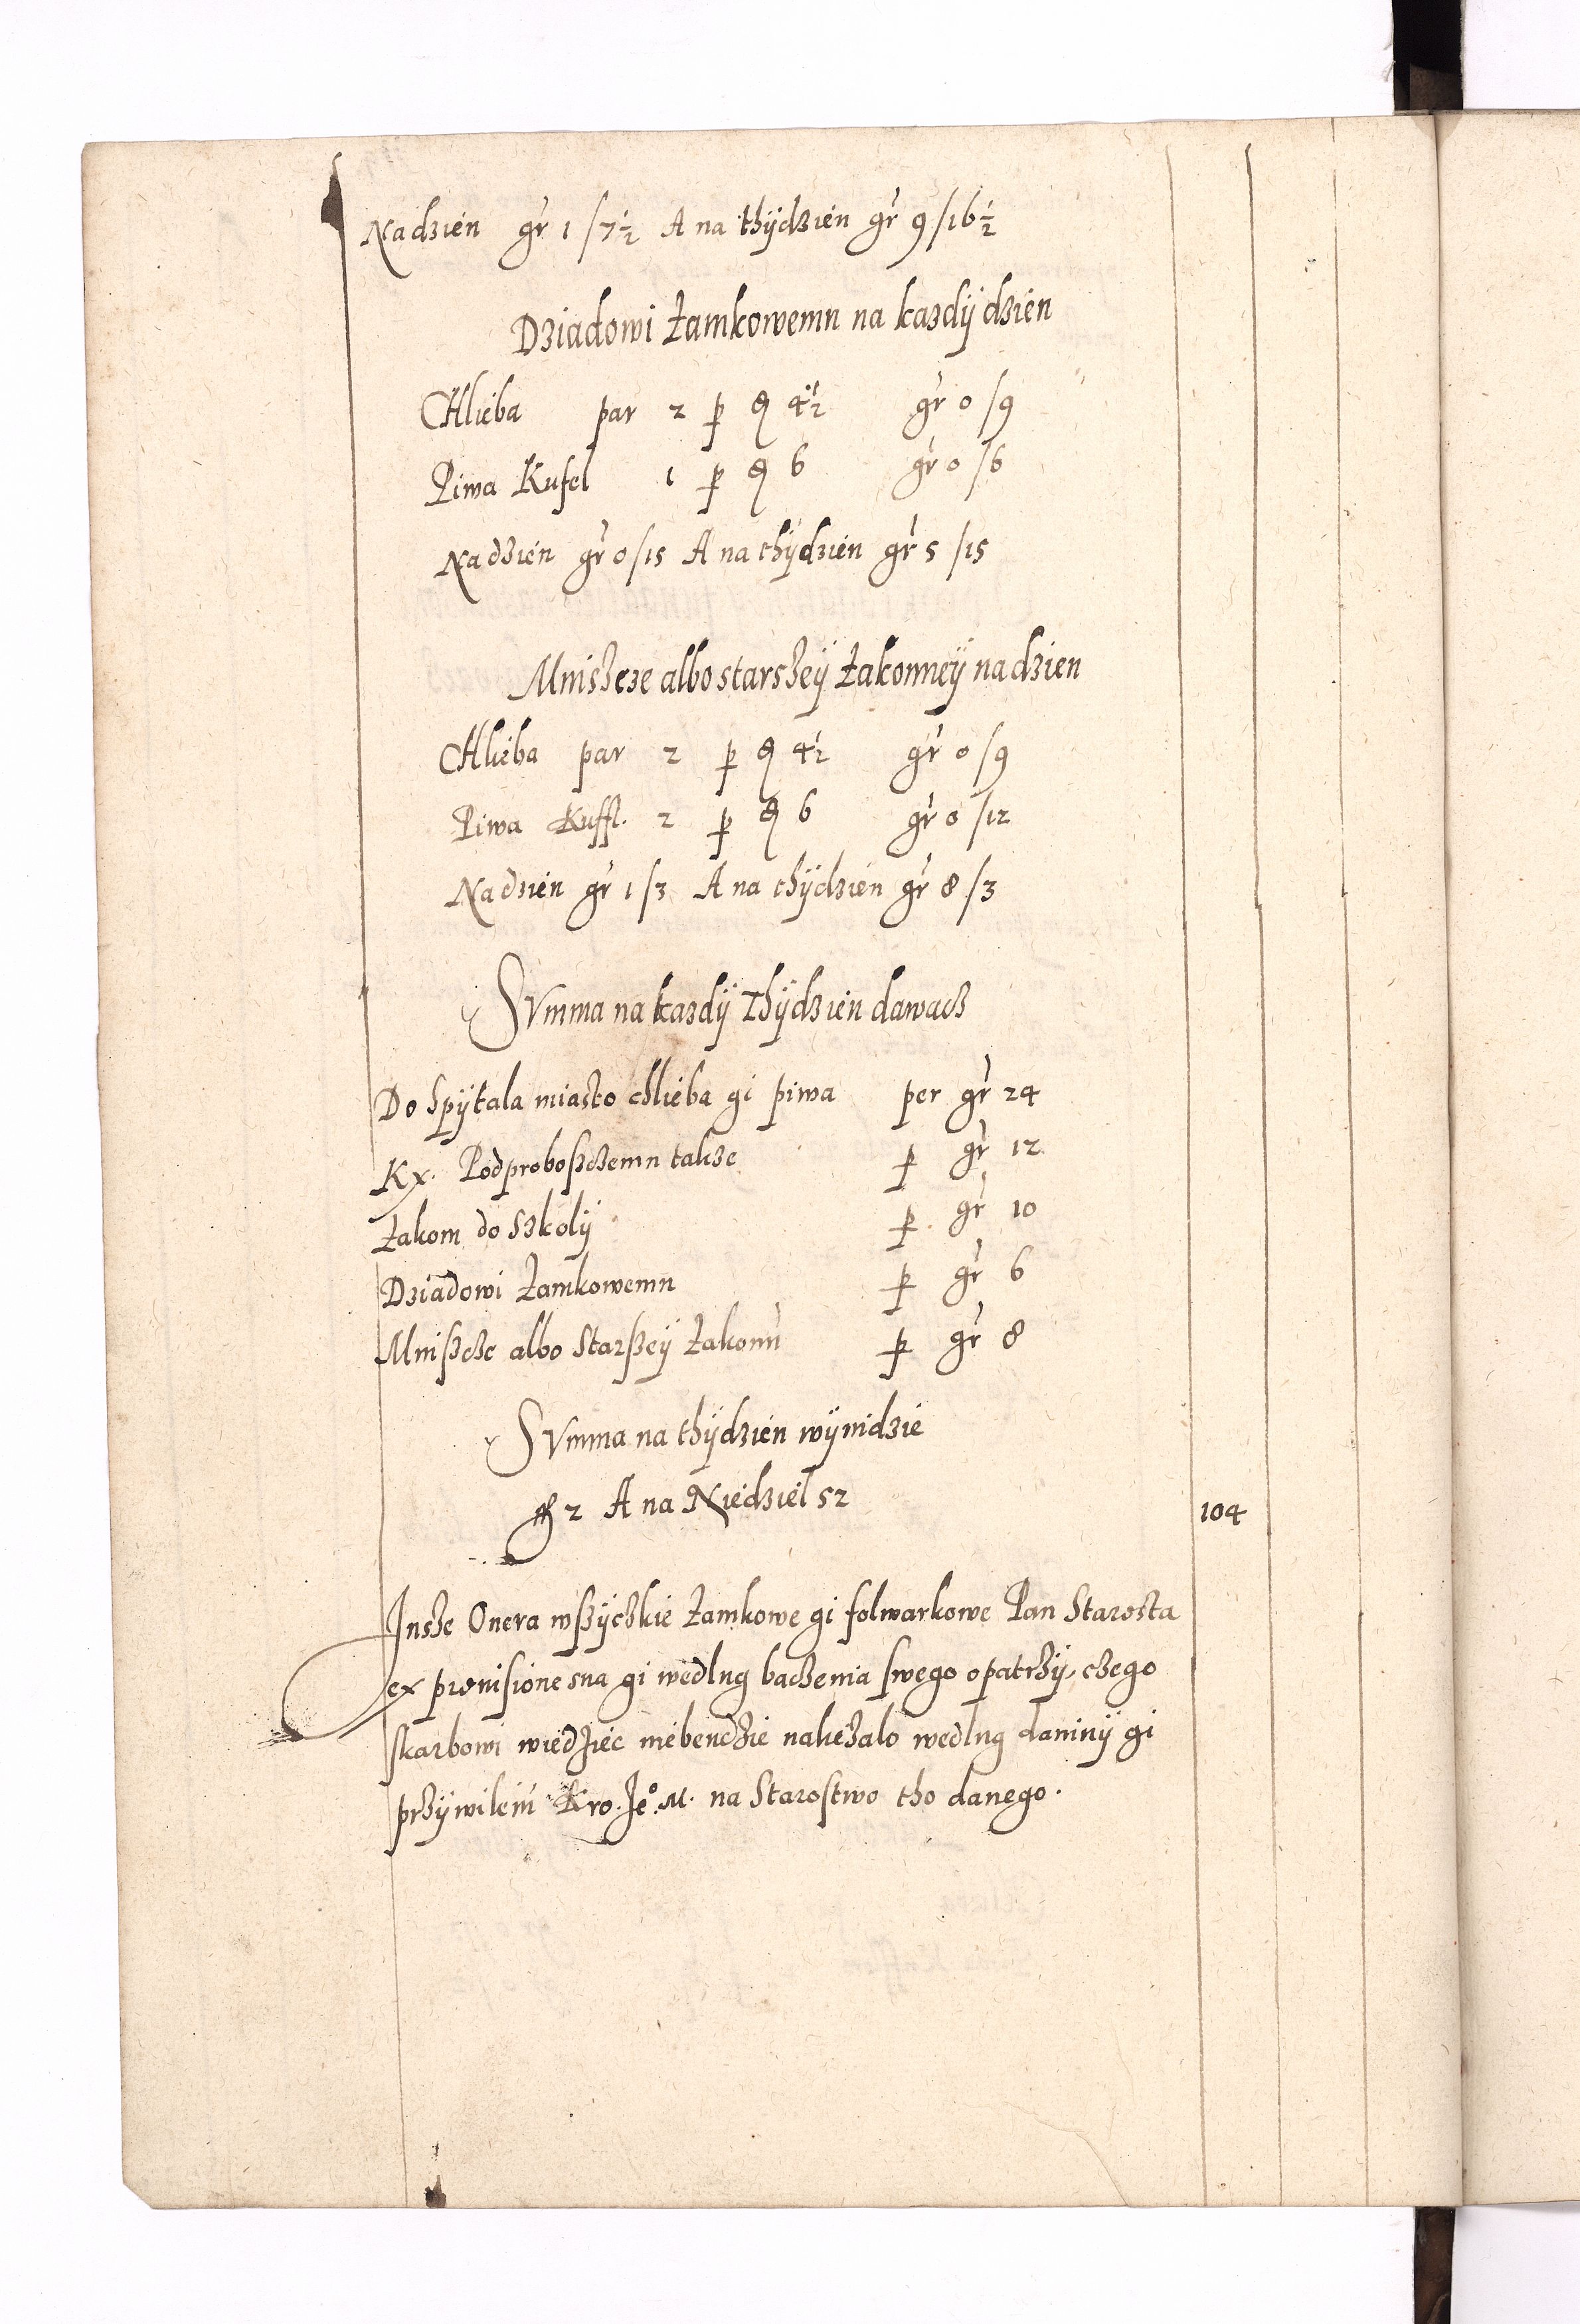 Na dzień gr 1/7½ A na thÿdzień gr 9/16½
Dziadowi Zamkowemu na kazdÿ dzień
CHlieba par 2 p ₰ 4½ gr 0/9
Piwa Kufel 1 p ₰ 6 gr 0/6
Na dzień gr 0/15 A na thÿdzień gr 5/15
Mniszcze albo starszeÿ Zakonneÿ na dzien
CHlieba par 2 p ₰ 4½ gr 0/9
Piwa Kuffl. 2 p ₰ 6 gr 0/12
Na dzień gr 1/3 A na thÿdzień gr 8/3
SVmma na kazdÿ Thÿdzień dawacz
Do Spÿtala miasto chlieba gi piwa per gr 24
Kx. Podproboszczemu takze p gr 12
Zakom do Szkolÿ p gr 10
Dziadowi Zamkowemu p gr 6
Mniszcze albo Starszeÿ Zakonń p gr 8
SVmma na thÿdzień wÿnidzie
fl 2 A na Niedziel 52 104
Insze Onera wszÿczkie Zamkowe gi folwarkowe Pan Starosta
ex prouisione sua gi wedlug baczenia swego opatrzÿ, czego
skarbowi wiedzięc niebendzie nalezalo wedlug daninÿ gi
przÿwileiu Kro. Je°. M. na Starostwo tho danego.